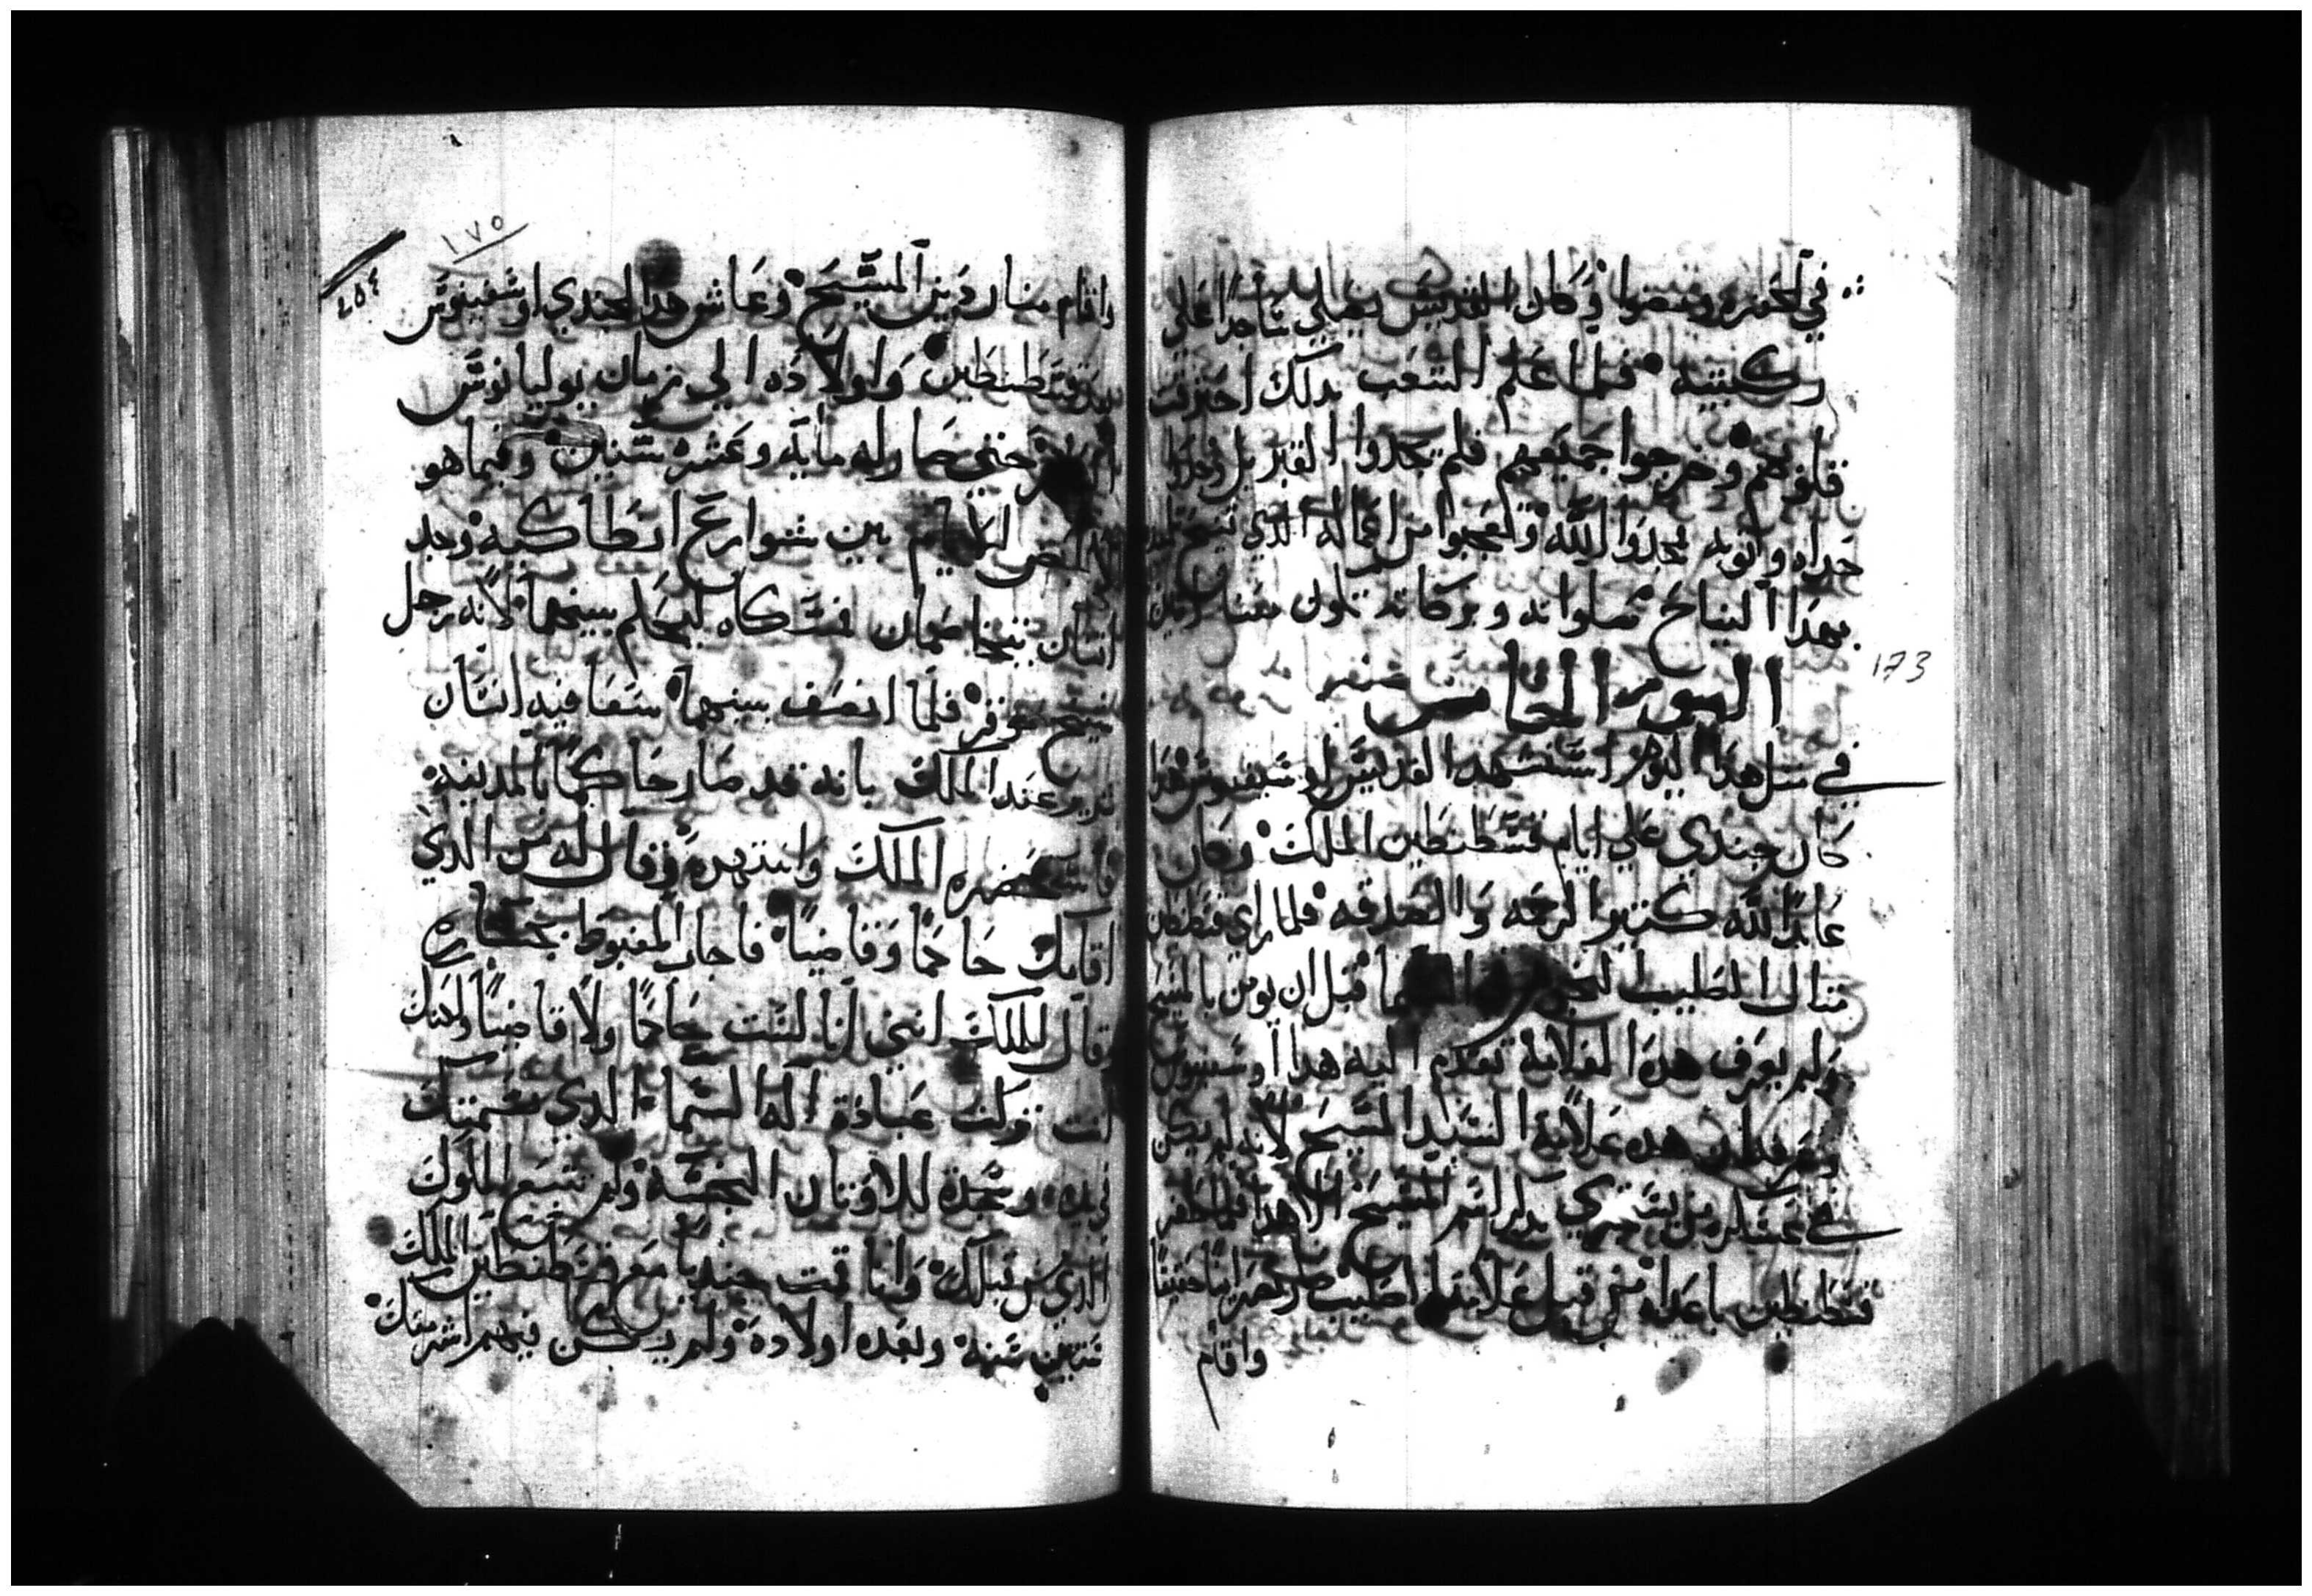 في الحفره ومضوا وكان القديس يصلي ساجدا علي
ركبتيه فلما علم الشعب بدلك احترقت
قلوبهم وخرجوا جميعهم فلم يجدوا القبر بل وجدوا
جسده واتوا به مجدوا الله وتعجبوا من افعاله الدي
بهدا النياح صلواته وبركاته تكون معنا امين
اليوم الخامس عشر
173
في مثل هدا اليوم استشهد القديس اوسغنيوس هدا
كان جندي علي ايام قسطنطين الملك وكان
عابدا لله كتير الرحمه والصدقه فلما راي قسطنطين
متال الصليب قبل ان يومن بالمسيح
ولم يعرف هده العلامة تقدم اليه هدا اوسغنيوس
وعرفه ان هده علامة السيد المسيح لانه لم يكن
في عسكره من يستجري يدكر اسم المسيح الا هدا فلما ظفر
قسطنطين باعداه من قبل علامة الصليب صار نصرانيا حسنا
واقام
١٧٥
٤٥٤
واقام منار دين المسيح وعاش هدا الجندي اوسغنيوس
بعد قسطنطين واولاده الي زمان يوليانوس
حتي صار له مايه وعشره سنين وفيما هو
بعض الايام بين شوارع انطاكيه وجد
انسان يتخاصمان فمسكاه ليحكم بينهما لانه رجل
شيخ موقر فلما انصف بينهما سعا فيه انسان
شرير عند الملك بانه قد صار حاكما بالمدينة
فاستحضره الملك وانتهره وقال له من الدي
اقامك حاكما وقاضيا فاجاب المغبوط بجساره
وقال للملك انني انا لست حاكما ولا قاضيا ولكنك
انت تركت عبادة اله السما الدي نسمتك
في يده وسجدة للاوتان النجسة ولم تتبع الملوك
الدي من قبلك وانا قمت جنديا مع قسطنطين الملك
ستين سنه وبعده اولاده ولم يكن فيهم اشر منك